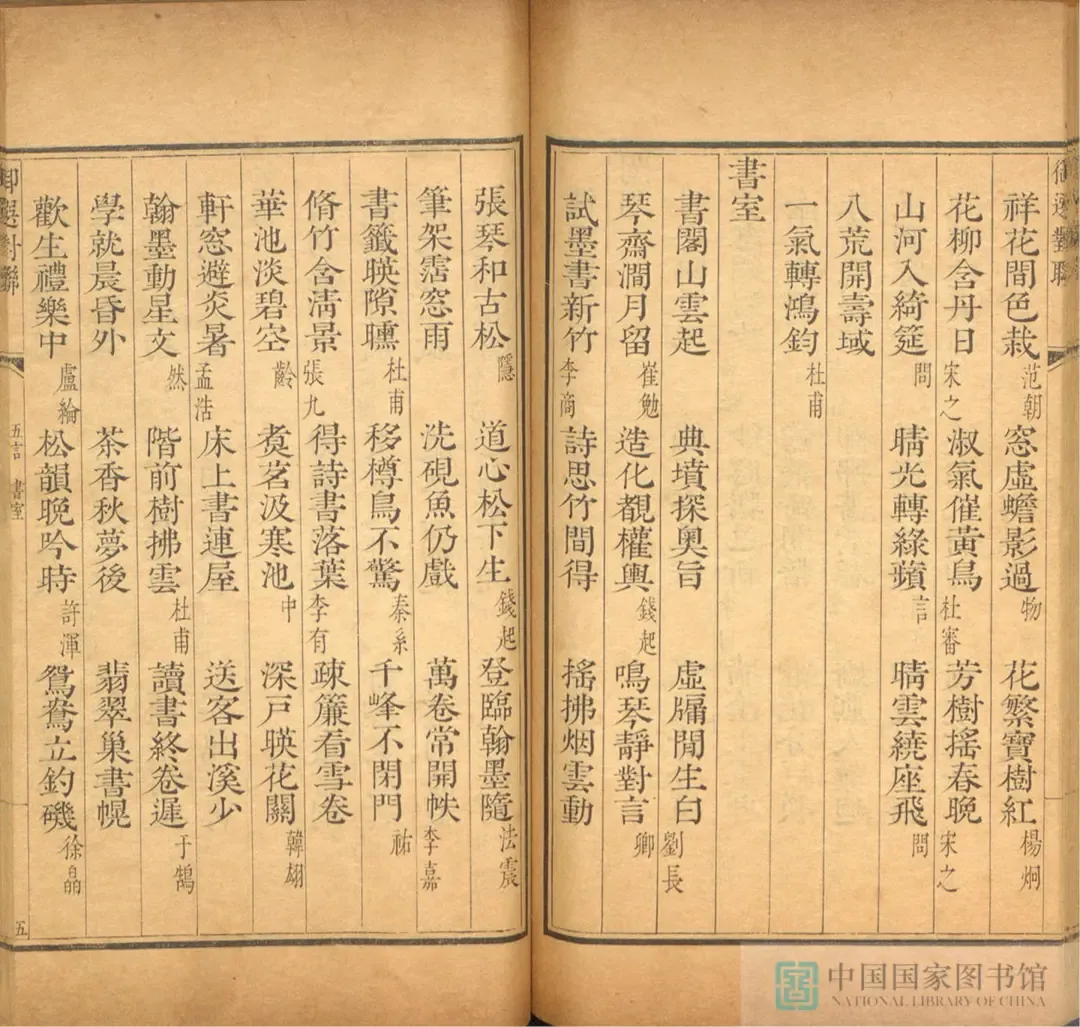 御選對聯
祥花間色栽 范朝 窓虛蟾影過 物 花繁寶樹紅 楊炯
花柳含丹日 宋之 淑氣催黃鳥 杜審 芳樹搖春晚 宋之
山河入綺筵 問 晴光轉綠蘋 言 晴雲繞座飛 問
八荒開壽域
一氣轉鴻鈞 杜甫
書室
書閣山雲起 典墳探奥旨 虛牖閒生白 劉長
琴齋澗月留 崔勉 造化覩權輿 錢起 鳴琴靜對言 卿
試墨書新竹 李商 詩思竹間得 搖拂烟雲動
張琴和古松 隱 道心松下生 錢起 登臨翰墨隨 法震
筆架霑窓雨 洗硯魚仍戲 萬卷常開帙 李嘉
書籤暎隙曛 杜甫 移樽鳥不驚 秦系 千峰不閉門 祐
脩竹含清景 張九 得詩書落葉 李有 疎簾看雪卷
華池淡碧空 齡 煑茗汲寒池 中 深戸暎花關 韓翃
軒窓避炎暑 孟浩 床上書連屋 送客出溪少
翰墨動星文 然 階前樹拂雲 杜甫 讀書終卷遲 于鵠
學就晨昏外 茶香秋夢後 翡翠巢書幌
歡生禮樂中 盧綸 松韻晚吟時 許渾 鴛鴦立釣磯 徐晶
御選對聯 五言 書室 五
中国国家图书馆
NATIONAL LIBRARY OF CHINA